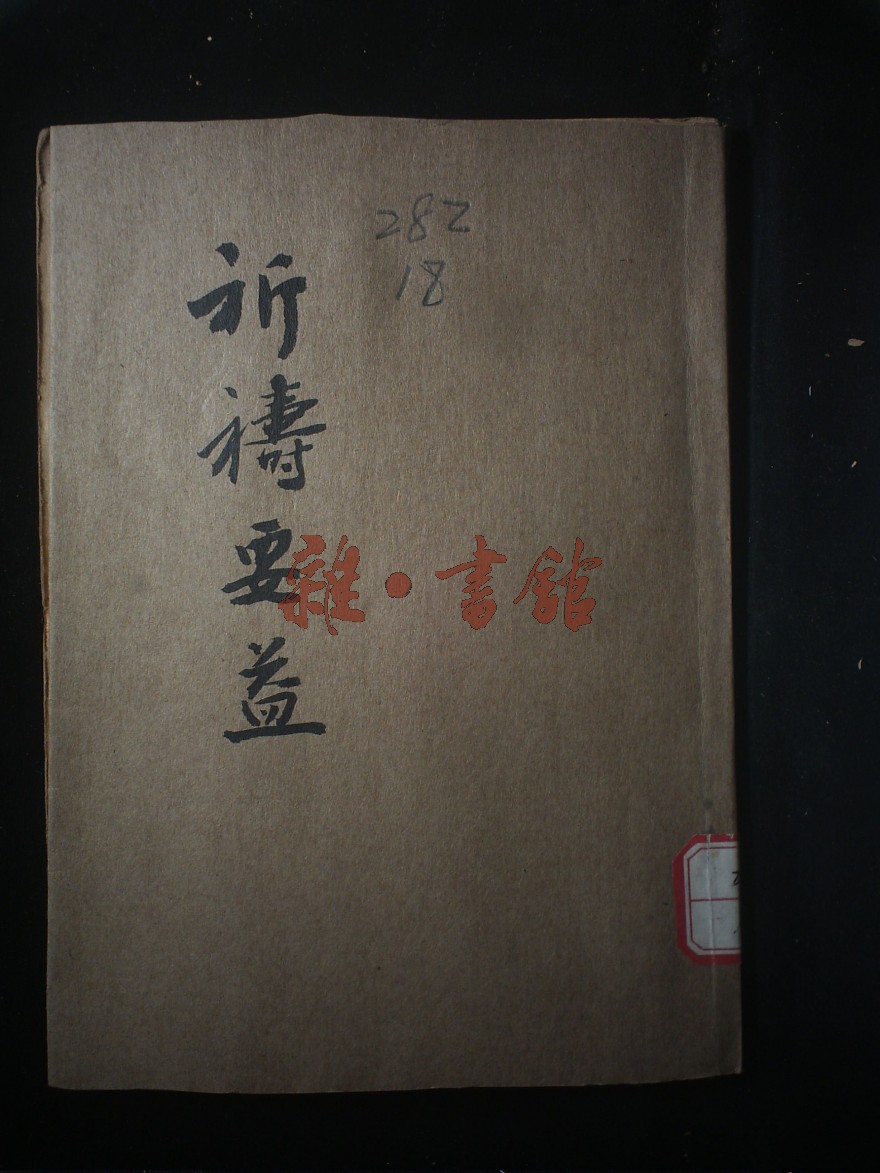 282
18
祈禱要益
雜・書館